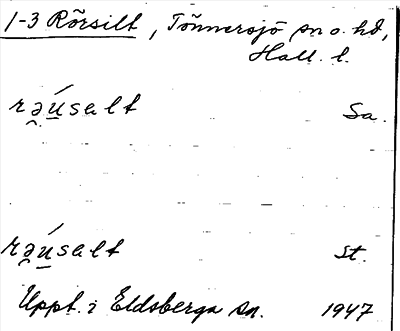 1-3 Rõrsilt, Tõnnersjõ sn o. hd,
Hall. l.
rə̯ú̲salt Sa.
rə̯ú̲salt St.
Uppt. i Eldsberga sn. 1947